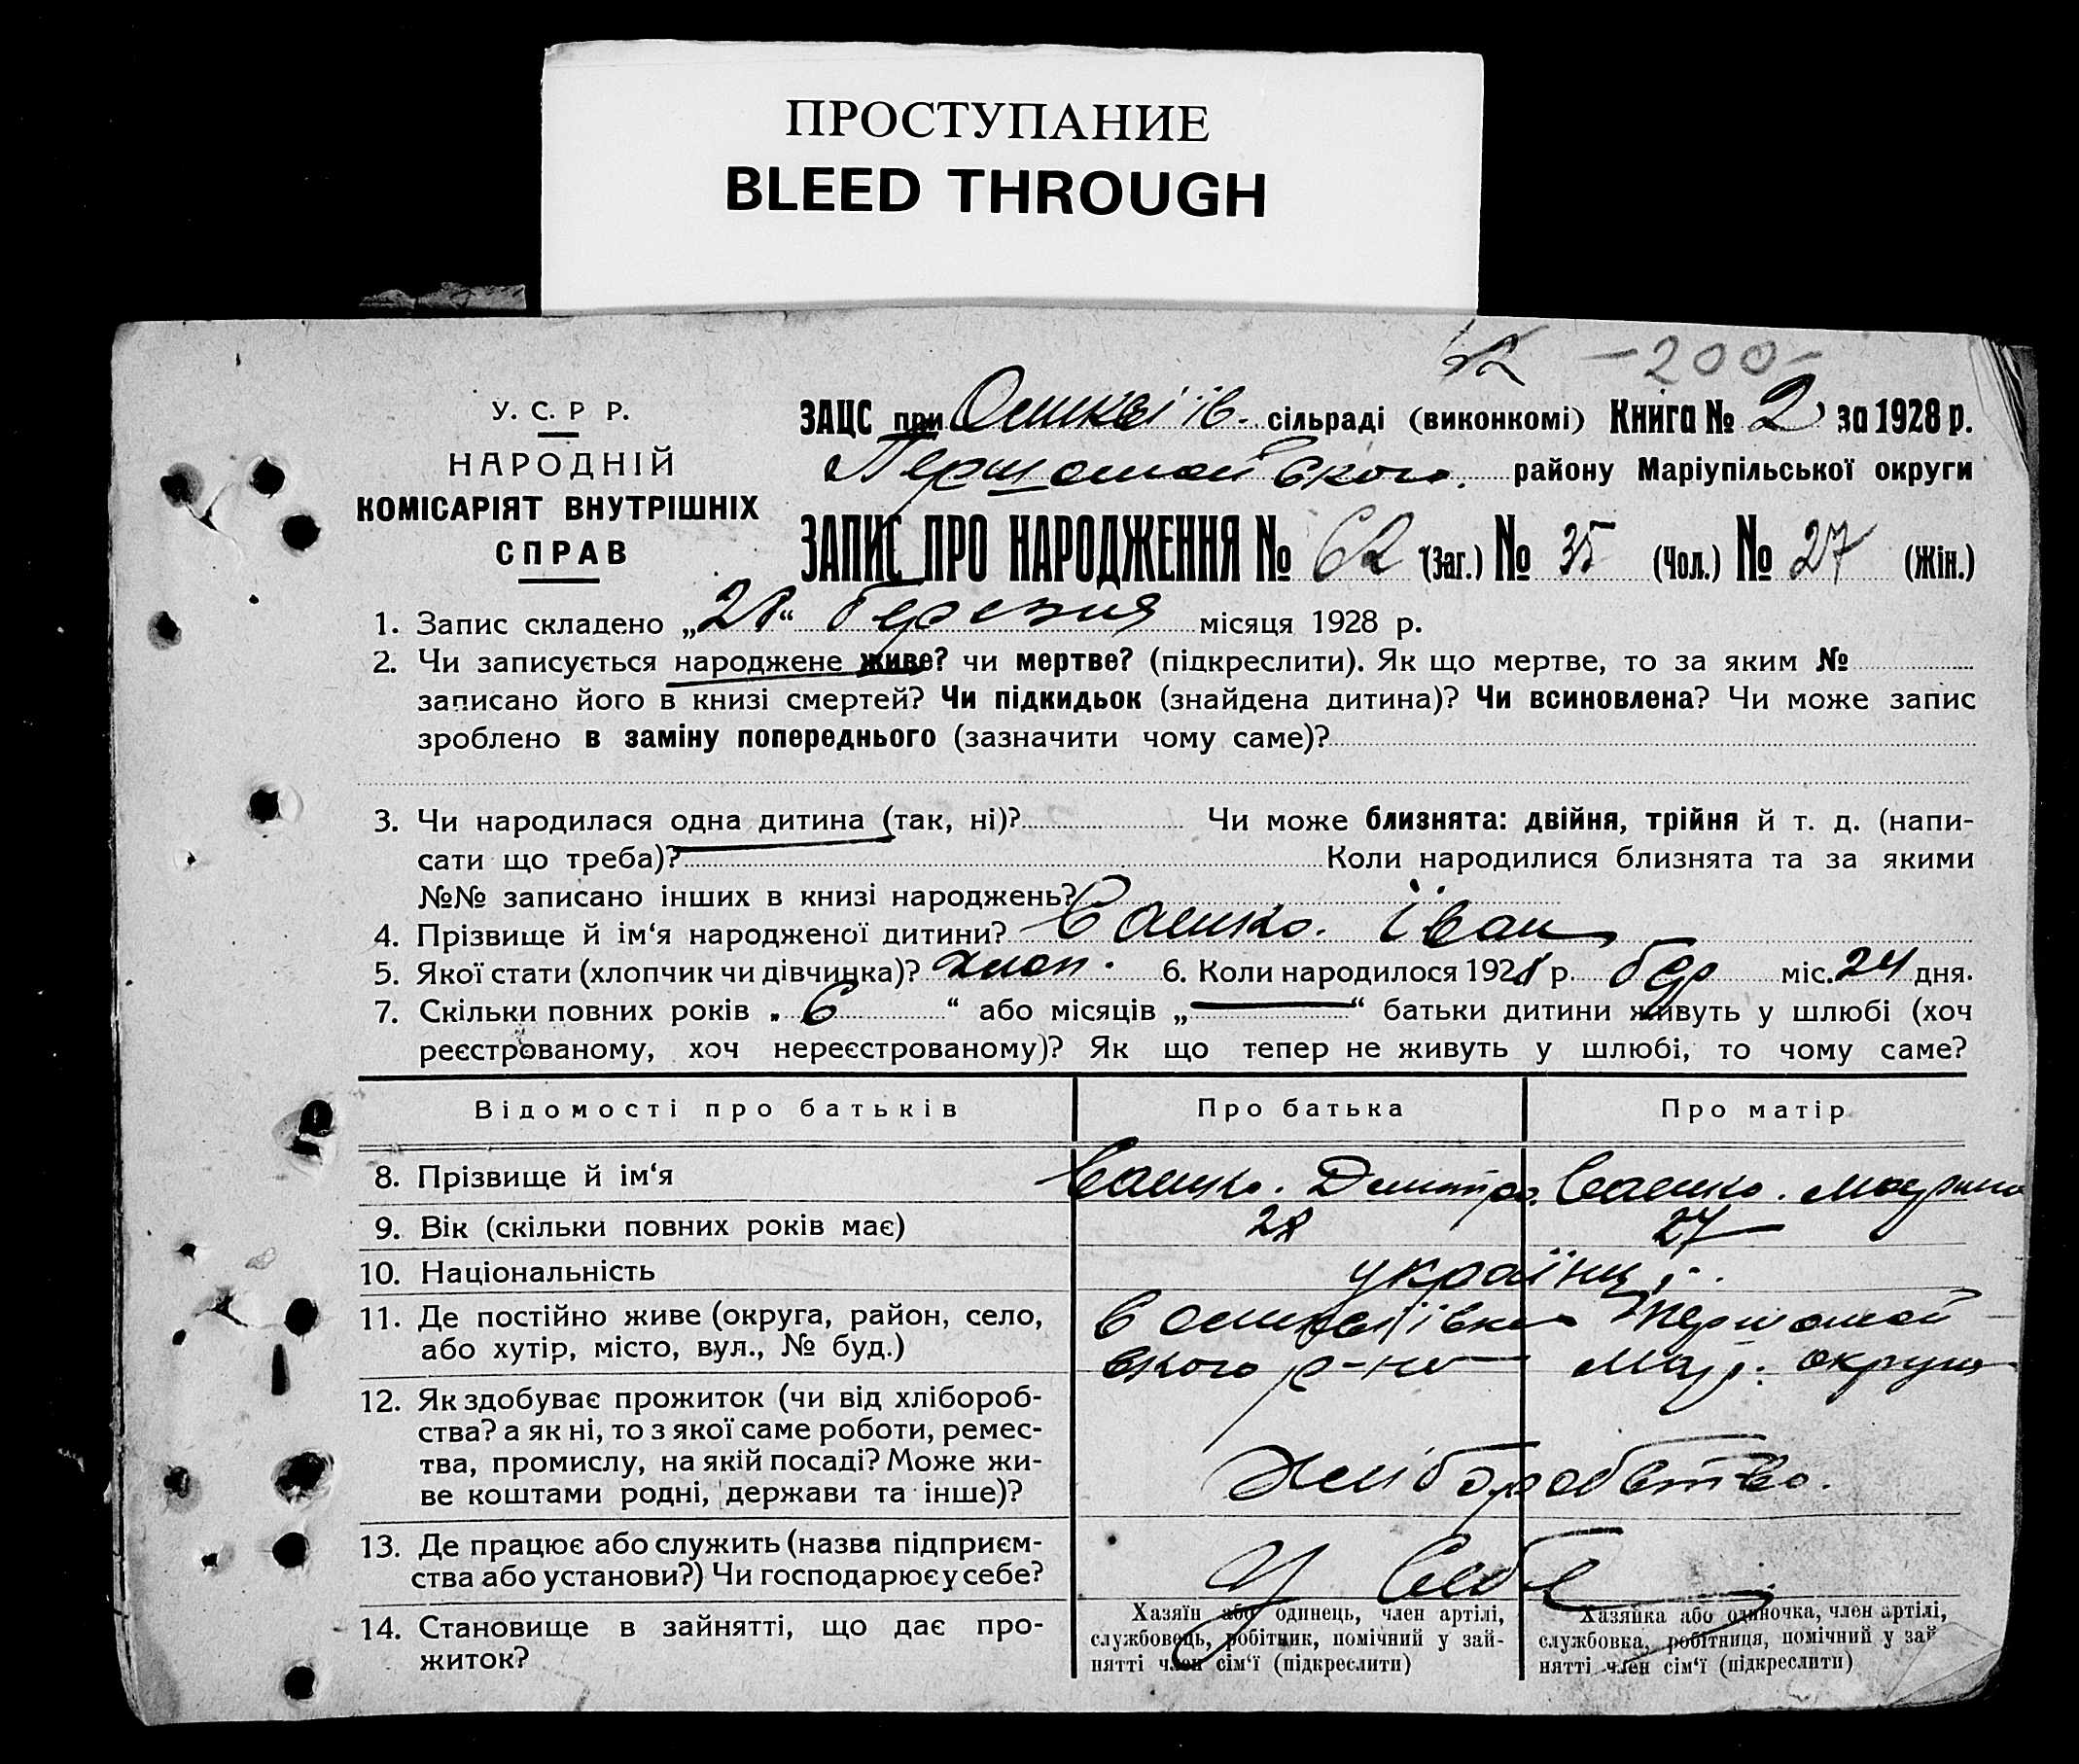 ПРОСТУПАНИЕ
BLEED THROUGH
62 -200-
У. С. Р Р.
НАРОДНІЙ
КОМІСАРІЯТ ВНУТРІШНІХ
СПРАВ
ЗАЦС при сільраді (виконкомі) Книга № 2 за 1928 р.
Першотравневого району Маріупільської округи
ЗАПИС ПРО НАРОДЖЕННЯ № 62 (Заг.) № 35 (Чол.) № 27 (Жін.)
1. Запис складено „ “ березня місяця 1928 р.
2. Чи записується народжене живе? чи мертве? (підкреслити). Як що мертве, то за яким №
записано його в книзі смертей? Чи підкидьок (знайдена дитина)? Чи всиновлена? Чи може запис
зроблено в заміну попереднього (зазначити чому саме)?
3. Чи народилася одна дитина (так, ні)? Чи може близнята: двійня, трійня й т. д. (напи-
сати що треба)? Коли народилися близнята та за якими
№№ записано інших в книзі народжень?
4. Прізвище й ім‘я народженої дитини? Сашко. Іван
5. Якої стати (хлопчик чи дівчинка)? хлоп. 6. Коли народилося 1928 р. бер міс. 24 дня.
7. Скільки повних років „ 6 “ або місяців „ — “ батьки дитини живуть у шлюбі (хоч
реєстрованому, хоч нереєстрованому)? Як що тепер не живуть у шлюбі, то чому саме?
Відомості про батьків Про батька Про матір
8. Прізвище й ім‘я Сашко. Дмитро. Сашко. Марина
9. Вік (скільки повних років має) 28 27
10. Національність українці.
11. Де постійно живе (округа, район, село,
або хутір, місто, вул., № буд.)
ського р-ну Мар. округи
12. Як здобуває прожиток (чи від хлібороб-
ства? а як ні, то з якої саме роботи, ремес-
тва, промислу, на якій посаді? Може жи-
ве коштами родні, держави та інше)?
Хліборобство.
13. Де працює або служить (назва підприєм-
ства або установи?) Чи господарює у себе?
У себе
14. Становище в зайнятті, що дає про-
житок?
Хазяїн або одинець, член артілі,
службовець, робітник, помічний у зай-
нятті член сім‘ї (підкреслити)
Хазяйка або одиночка, член артілі,
службовка, робітниця, помічний у зай
нятті член сім‘ї (підкреслити)